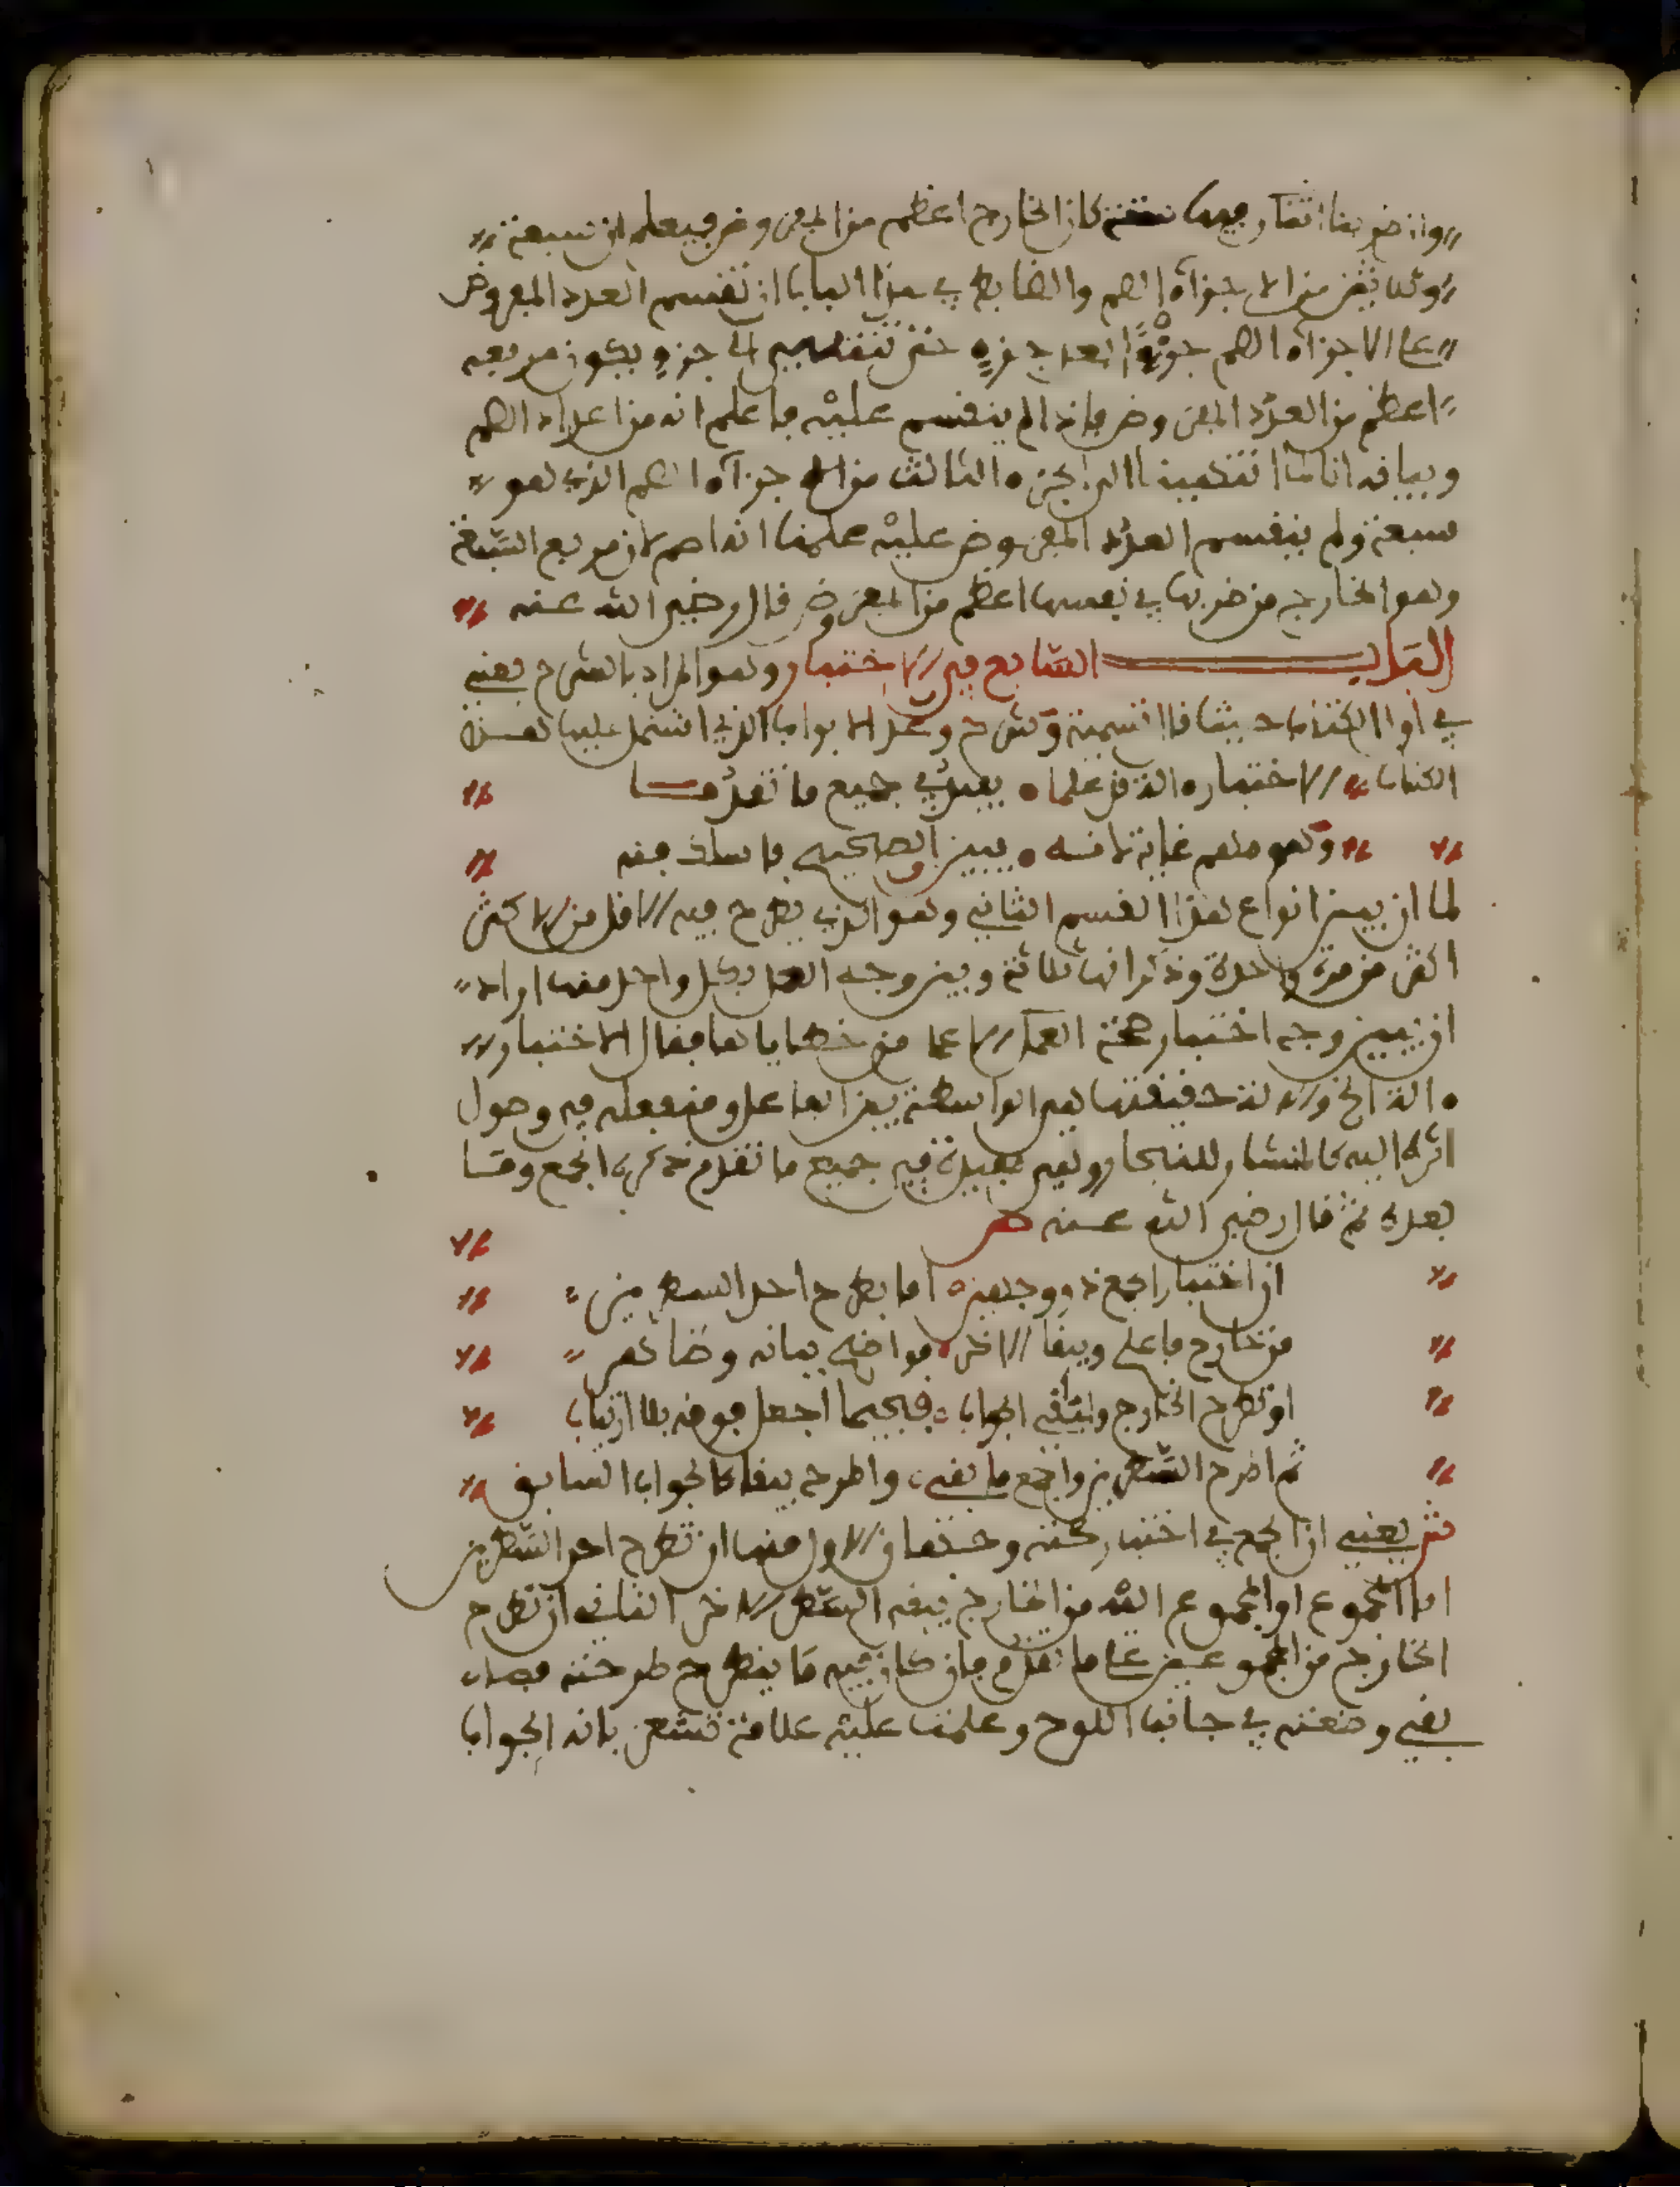 وان ضربنا اثنا فيها كان الخارج اعظم من المفروض فيعلم ان سبعة
من الاجزاء الصم والضابط في هذا الباب ان تقسم العدد المفروض
على الاجزاء الصم جزءا بعد جزء حتى تنتهي الى جزء يكون مربعه
اعظم من العدد المفروض فاذا لم ينقسم عليه فاعلم انه من اعداد الصم
وبيانه انا لما انتهينا الى الجزء الثالث من الاجزاء الصم الذي هو
سبعة ولم ينقسم العدد المفروض عليه علمنا انه اصم لان مربع السبعة
وهو الخارج من ضربها في نفسها اعظم من المفروض قال رضي الله عنه
الباب السابع في الاختبار وهو المراد بالشرح يعني
في اول الكتاب حيث قال قسمته وشرح وعد الابواب الذي اشتمل عليها هذا
الكتاب الاختبار ءالة فن علما يفيد في جميع ما تقدما
وهو مهم غاية لانه يبين الصحيح فاسلك فنه
لما ان بين انواع هذا القسم الثاني وهو الذي يطرح فيه الاقل من الاكثر
اكثر من مرة واحدة وذكر انها ثلاثة وبين وجه العمل بكل واحد منها اراد
ان يبين وجه اختبار صحة العمل من خطايا لها فقال الاختبار
ءالة الخ والالة حقيقتها هي الواسطة بين الفاعل ومنفعله في وصول
اثره اليه كالمنشار للنجار وهي مفيدة في جميع ما تقدم ذكره الجمع وما
بعده ثم قال رضي الله عنه ص
ان اختبار الجمع ذو وجهين اما بطرح احد السطرين
من خارج فاعلم ويبقا الاخر فواضح بيانه وظاهر
او تطرح الخارج وابقي الجواب فحيثما اجعل فوقه بلا ارتياب
ثم اطرح السطرين واجمع ما بقي واطرحه يبقا كالجواب السابق
ش يعني ان الجمع في اختبار صحته وجهان الاول منهما ان تطرح احد السطرين
اما المجموع او المجموع اليه من الخارج يبقى السطر الاخر الثاني ان تطرح
الخارج من المجموعين على ما تقدم فان كان فيه ما ينطرح طرحته فما
بقي وضعته في جانب اللوح وعلمت عليه علامة تشعر بانه الجواب